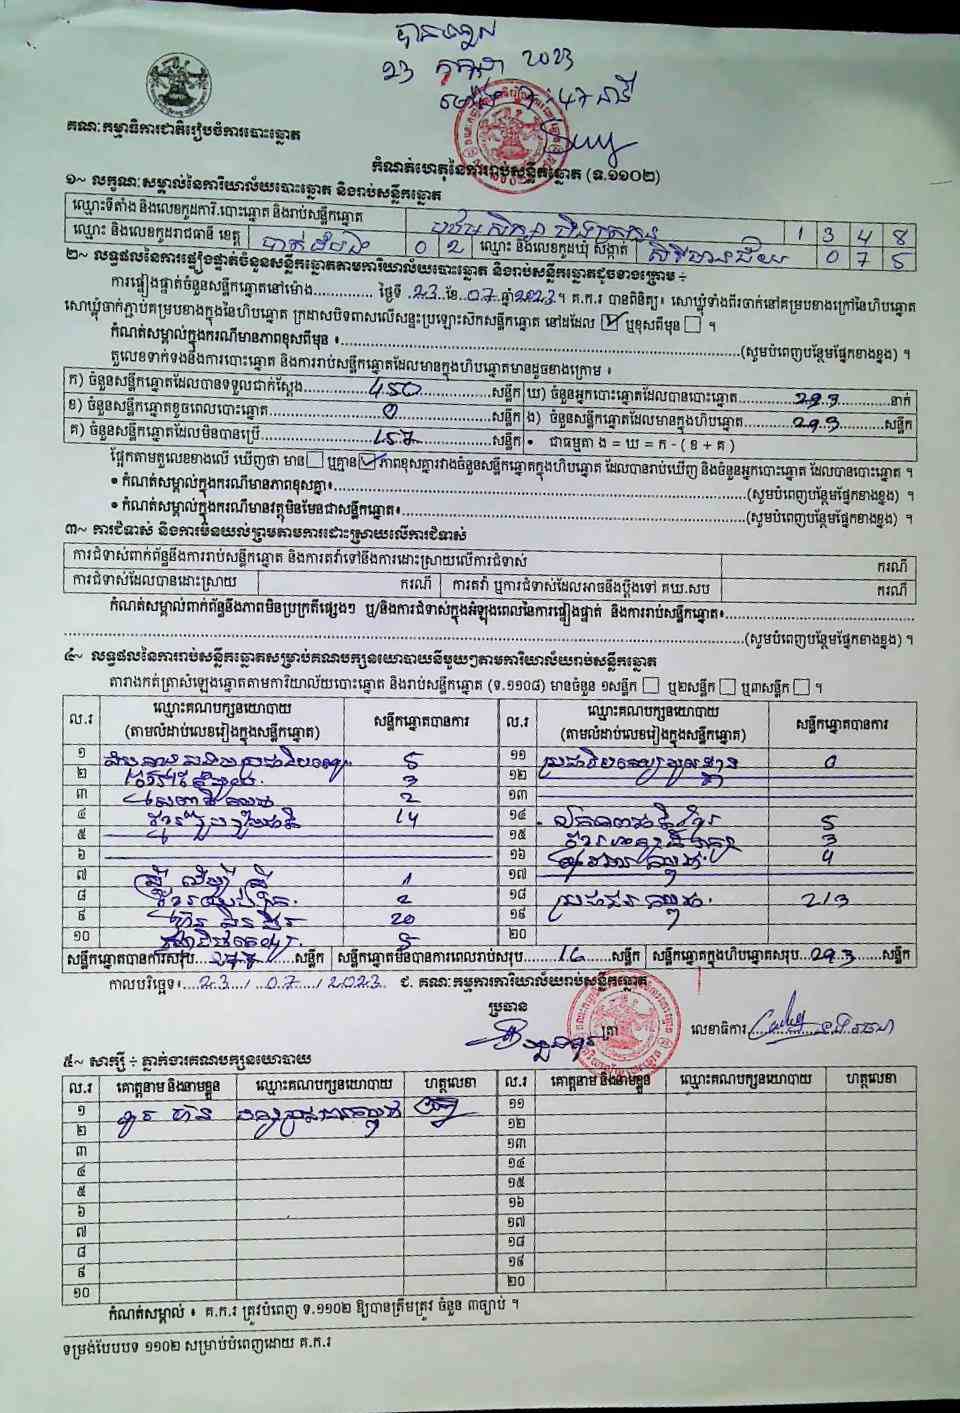 បានទទួល
23 កក្កដា 2023
គណៈកម្មាធិការជាតិរៀបចំការបោះឆ្នោត
កំណត់ហេតុនៃការរាប់សន្លឹកឆ្នោត (ទ.១១០២)
១~ លក្ខណៈសម្គាល់នៃការិយាល័យបោះឆ្នោត និងរាប់សន្លឹកឆ្នោត
ឈ្មោះទីតាំង និងលេខកូដការិ.បោះឆ្នោត និងរាប់សន្លឹកឆ្នោត 1 3 4 8
ឈ្មោះ និងលេខកូដរាជធានី ខេត្ត បាត់ដំបង 0 2 ឈ្មោះ និងលេខកូដឃុំ សង្កាត់ 0 7 5
២~ លទ្ធផលនៃការផ្ទៀងផ្ទាត់ចំនួនសន្លឹកឆ្នោតតាមការិយាល័យបោះឆ្នោត និងរាប់សន្លឹកឆ្នោតដូចខាងក្រោម ÷
ការផ្ទៀងផ្ទាត់ចំនួនសន្លឹកឆ្នោតនៅម៉ោង.............. ថ្ងៃទី 23 ខែ 07 ឆ្នាំ 2023។ គ.ក.រ បានពិនិត្យ៖ សោឃ្លុំទាំងពីរចាក់នៅគម្របខាងក្រៅនៃហិបឆ្នោត
សោឃ្លុំចាក់ភ្ជាប់គម្របខាងក្នុងនៃហិបឆ្នោត ក្រដាសបិទពាសលើសន្ទះប្រឡោះសិកសន្លឹកឆ្នោត នៅដដែល ☑ ឬខុសពីមុន ☐ ។
កំណត់សម្គាល់ក្នុងករណីមានភាពខុសពីមុន ៖........(សូមបំពេញបន្ថែមផ្នែកខាងខ្នង) ។
តួលេខទាក់ទងនឹងការបោះឆ្នោត និងការរាប់សន្លឹកឆ្នោតដែលមានក្នុងហិបឆ្នោតមានដូចខាងក្រោម ៖
ក) ចំនួនសន្លឹកឆ្នោតដែលបានទទួលជាក់ស្តែង.....450.....សន្លឹក ឃ) ចំនួនអ្នកបោះឆ្នោតដែលបានបោះឆ្នោត.....293.....នាក់
ខ) ចំនួនសន្លឹកឆ្នោតខូចពេលបោះឆ្នោត.....0.....សន្លឹក ង) ចំនួនសន្លឹកឆ្នោតដែលមានក្នុងហិបឆ្នោត.....293.....សន្លឹក
គ) ចំនួនសន្លឹកឆ្នោតដែលមិនបានប្រើ.....157.....សន្លឹក • ជាធម្មតា ង = ឃ = ក - ( ខ + គ )
ផ្អែកតាមតួលេខខាងលើ ឃើញថា មាន ☐ ឬគ្មាន ☑ ភាពខុសគ្នារវាងចំនួនសន្លឹកឆ្នោតក្នុងហិបឆ្នោត ដែលបានរាប់ឃើញ និងចំនួនអ្នកបោះឆ្នោត ដែលបានបោះឆ្នោត ។
• កំណត់សម្គាល់ក្នុងករណីមានភាពខុសគ្នា៖........(សូមបំពេញបន្ថែមផ្នែកខាងខ្នង) ។
• កំណត់សម្គាល់ក្នុងករណីមានវត្ថុមិនមែនជាសន្លឹកឆ្នោត៖........(សូមបំពេញបន្ថែមផ្នែកខាងខ្នង) ។
៣~ ការជំទាស់ និងការមិនយល់ព្រមតាមការដោះស្រាយលើការជំទាស់
ការជំទាស់ពាក់ព័ន្ធនឹងការរាប់សន្លឹកឆ្នោត និងការតវ៉ាទៅនឹងការដោះស្រាយលើការជំទាស់ ករណី
ការជំទាស់ដែលបានដោះស្រាយ ករណី ការតវ៉ា ឬការជំទាស់ដែលអាចនឹងប្តឹងទៅ គឃ.សប ករណី
កំណត់សម្គាល់ពាក់ព័ន្ធនឹងភាពមិនប្រក្រតីផ្សេងៗ ឬ/និងការជំទាស់ក្នុងអំឡុងពេលនៃការផ្ទៀងផ្ទាត់ និងការរាប់សន្លឹកឆ្នោត៖........
........(សូមបំពេញបន្ថែមផ្នែកខាងខ្នង) ។
៤~ លទ្ធផលនៃការរាប់សន្លឹកឆ្នោតសម្រាប់គណបក្សនយោបាយនីមួយៗតាមការិយាល័យរាប់សន្លឹកឆ្នោត
តារាងកត់ត្រាសំឡេងឆ្នោតតាមការិយាល័យបោះឆ្នោត និងរាប់សន្លឹកឆ្នោត (ទ.១១០៨) មានចំនួន ១សន្លឹក ☐ ឬ២សន្លឹក ☐ ឬ៣សន្លឹក ☐ ។
ល.រ ឈ្មោះគណបក្សនយោបាយ (តាមលំដាប់លេខរៀងក្នុងសន្លឹកឆ្នោត) សន្លឹកឆ្នោតបានការ ល.រ ឈ្មោះគណបក្សនយោបាយ (តាមលំដាប់លេខរៀងក្នុងសន្លឹកឆ្នោត) សន្លឹកឆ្នោតបានការ
១ 5 ១១ 0
២ 3 ១២
៣ 2 ១៣
៤ 14 ១៤ 5
៥ ១៥ 3
៦ ១៦ 4
៧ 1 ១៧
៨ 2 ១៨ 213
៩ 20 ១៩
១០ 5 ២០
សន្លឹកឆ្នោតបានការសរុប........សន្លឹក សន្លឹកឆ្នោតមិនបានការពេលរាប់សរុប.....16.....សន្លឹក សន្លឹកឆ្នោតក្នុងហិបឆ្នោតសរុប.....293.....សន្លឹក
កាលបរិច្ឆេទ៖ 23 / 07 / 2023 ជ. គណៈកម្មការការិយាល័យរាប់សន្លឹកឆ្នោត
ប្រធាន
ត្រា លេខាធិការ
៥~ សាក្សី ÷ ភ្នាក់ងារគណបក្សនយោបាយ
ល.រ គោត្តនាម និងនាមខ្លួន ឈ្មោះគណបក្សនយោបាយ ហត្ថលេខា ល.រ គោត្តនាម និងនាមខ្លួន ឈ្មោះគណបក្សនយោបាយ ហត្ថលេខា
១ ១១
២ ១២
៣ ១៣
៤ ១៤
៥ ១៥
៦ ១៦
៧ ១៧
៨ ១៨
៩ ១៩
១០ ២០
កំណត់សម្គាល់ ៖ គ.ក.រ ត្រូវបំពេញ ទ.១១០២ ឱ្យបានត្រឹមត្រូវ ចំនួន ៣ច្បាប់ ។
ទម្រង់បែបបទ ១១០២ សម្រាប់បំពេញដោយ គ.ក.រ